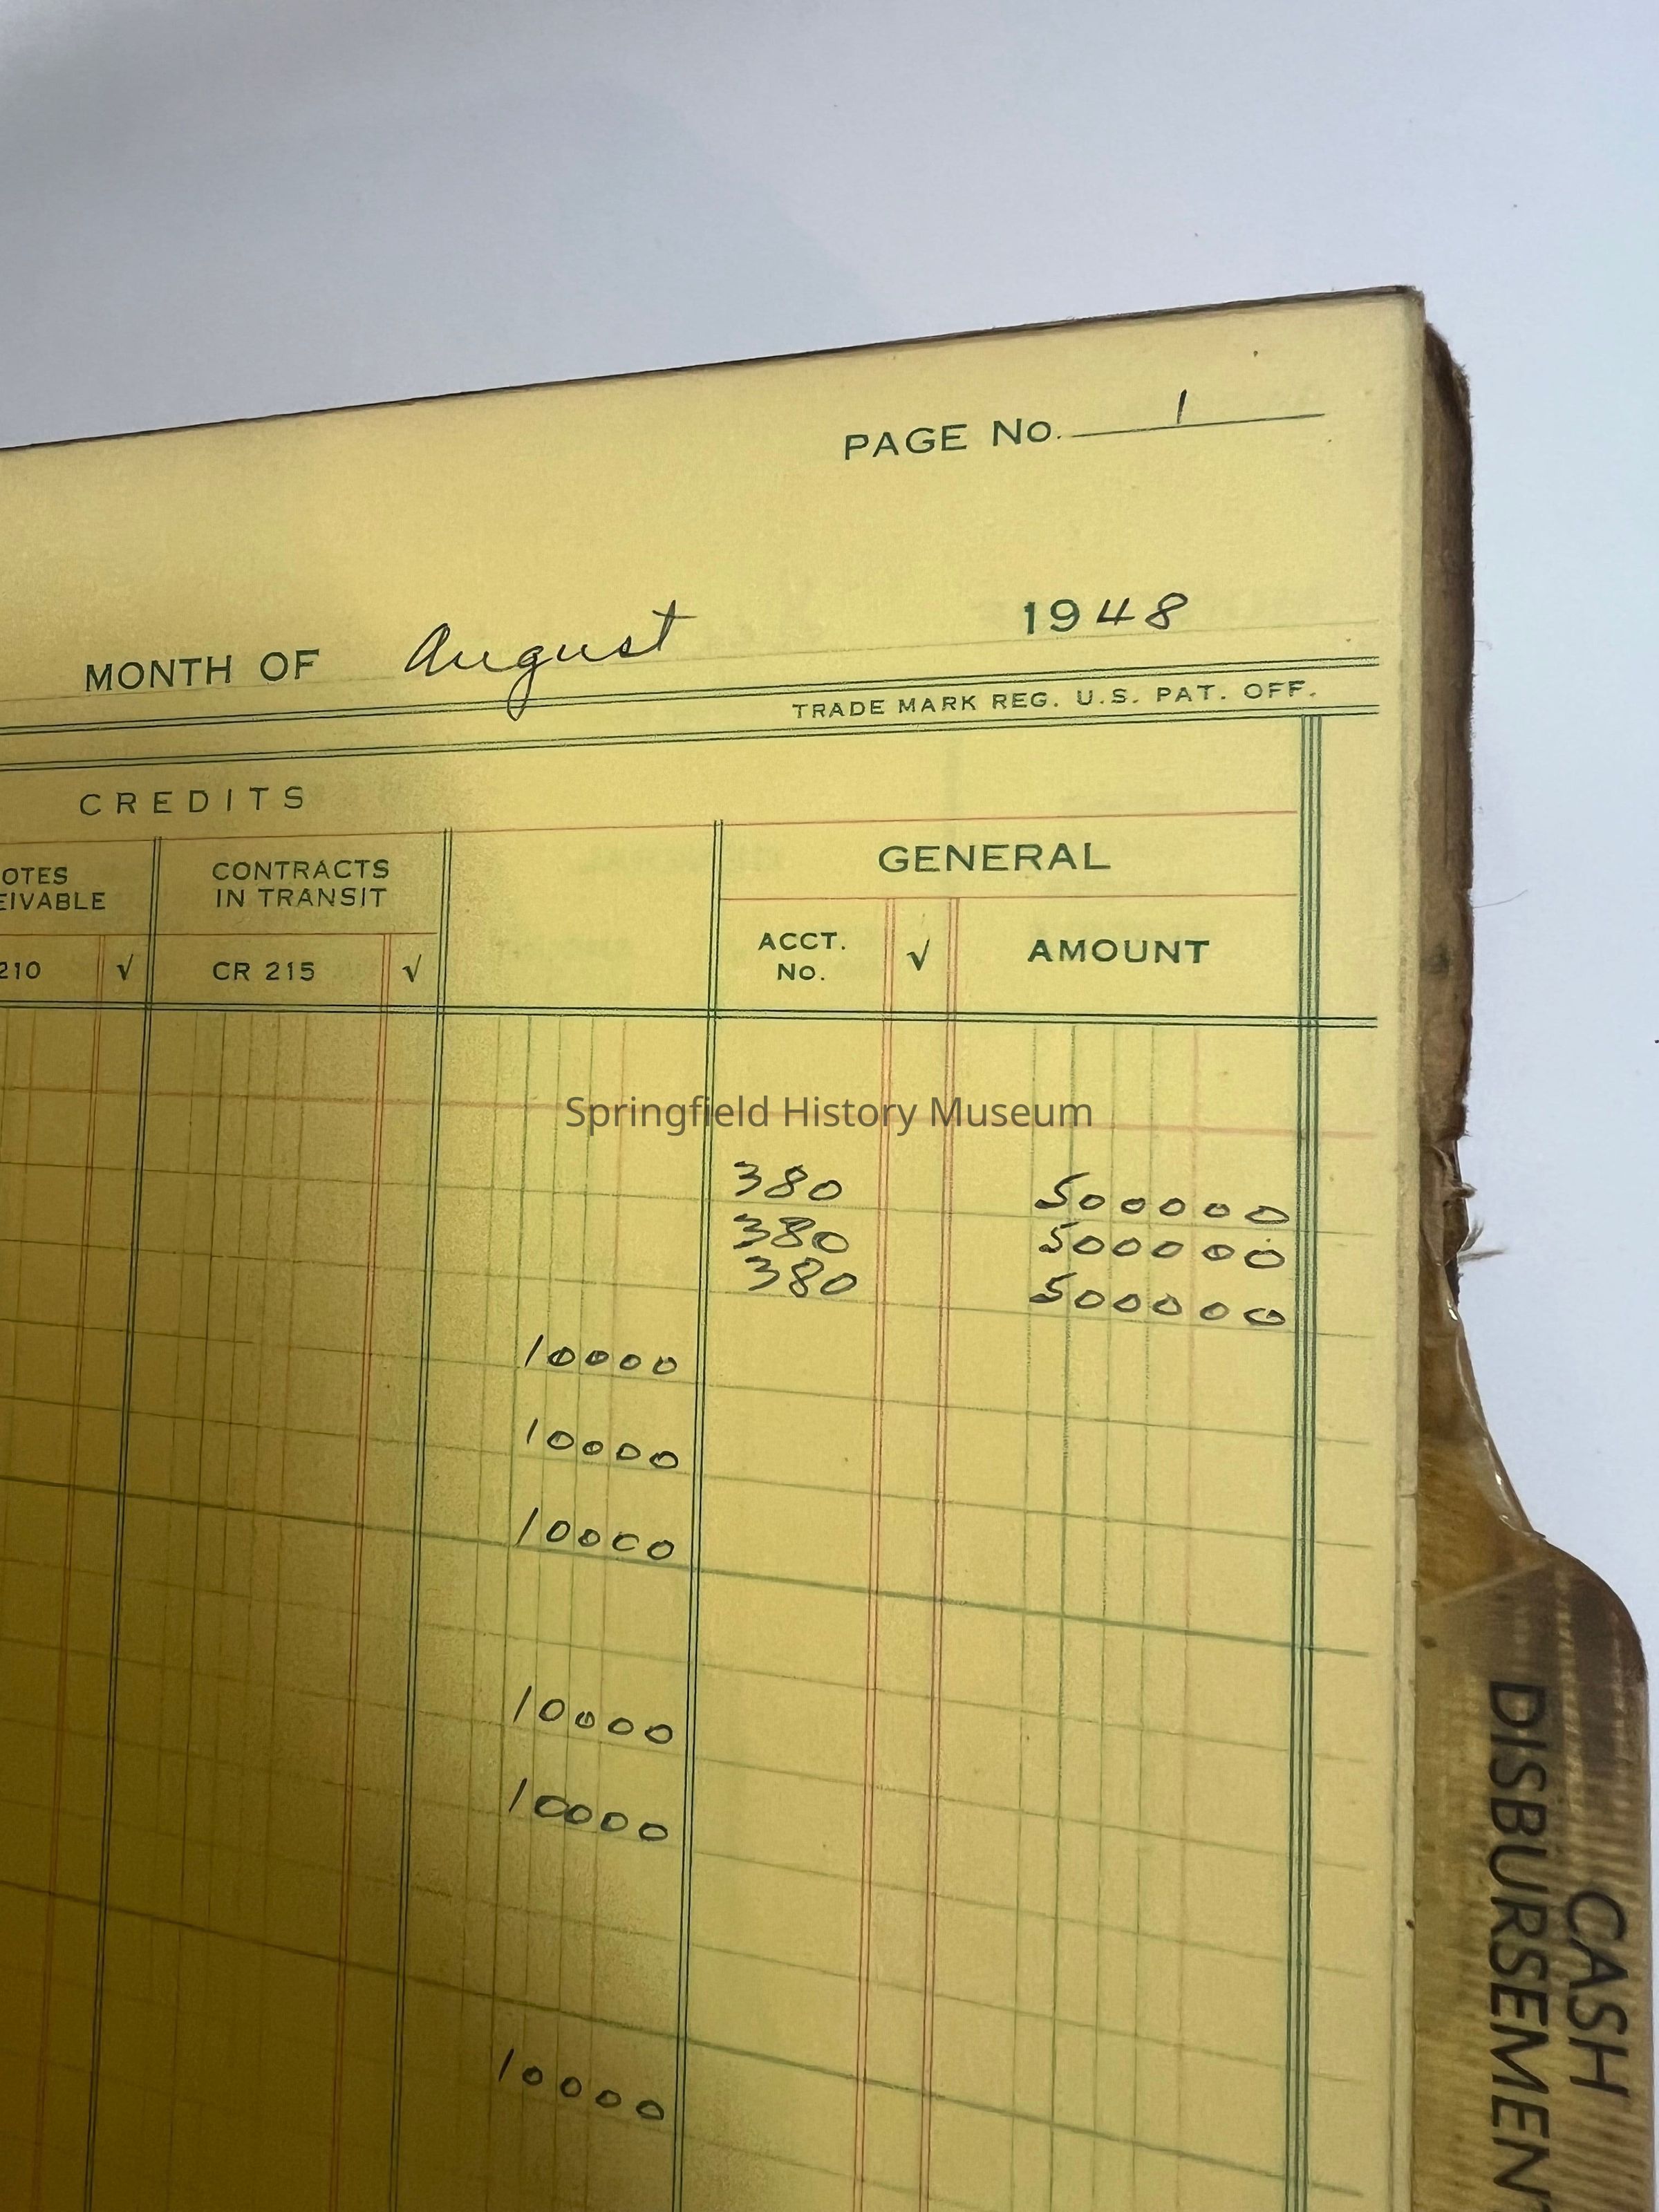 PAGE No. 1
MONTH OF August 1948
TRADE MARK REG. U.S. PAT. OFF.
CREDITS
OTES
EIVABLE
210 √
CONTRACTS
IN TRANSIT
CR 215 √
GENERAL
ACCT.
No.
√
AMOUNT
Springfield History Museum
380 500000
380 500000
380 500000
10000
10000
10000
10000
10000
10000
CASH
DISBURSEMEN